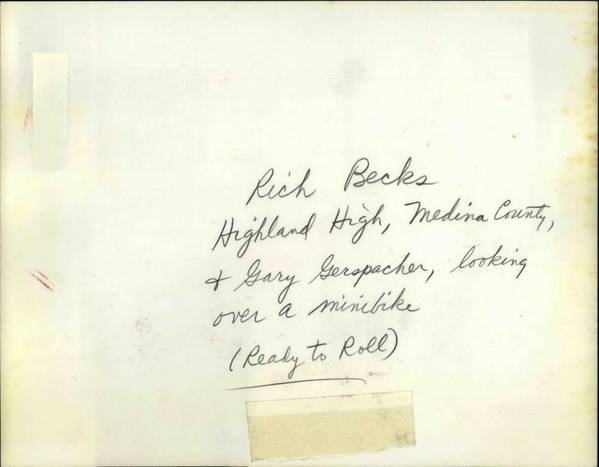 Rich Becks
Highland High, Medina County,
& Gary Gerspacher, looking
over a minibike
(Ready to Roll)